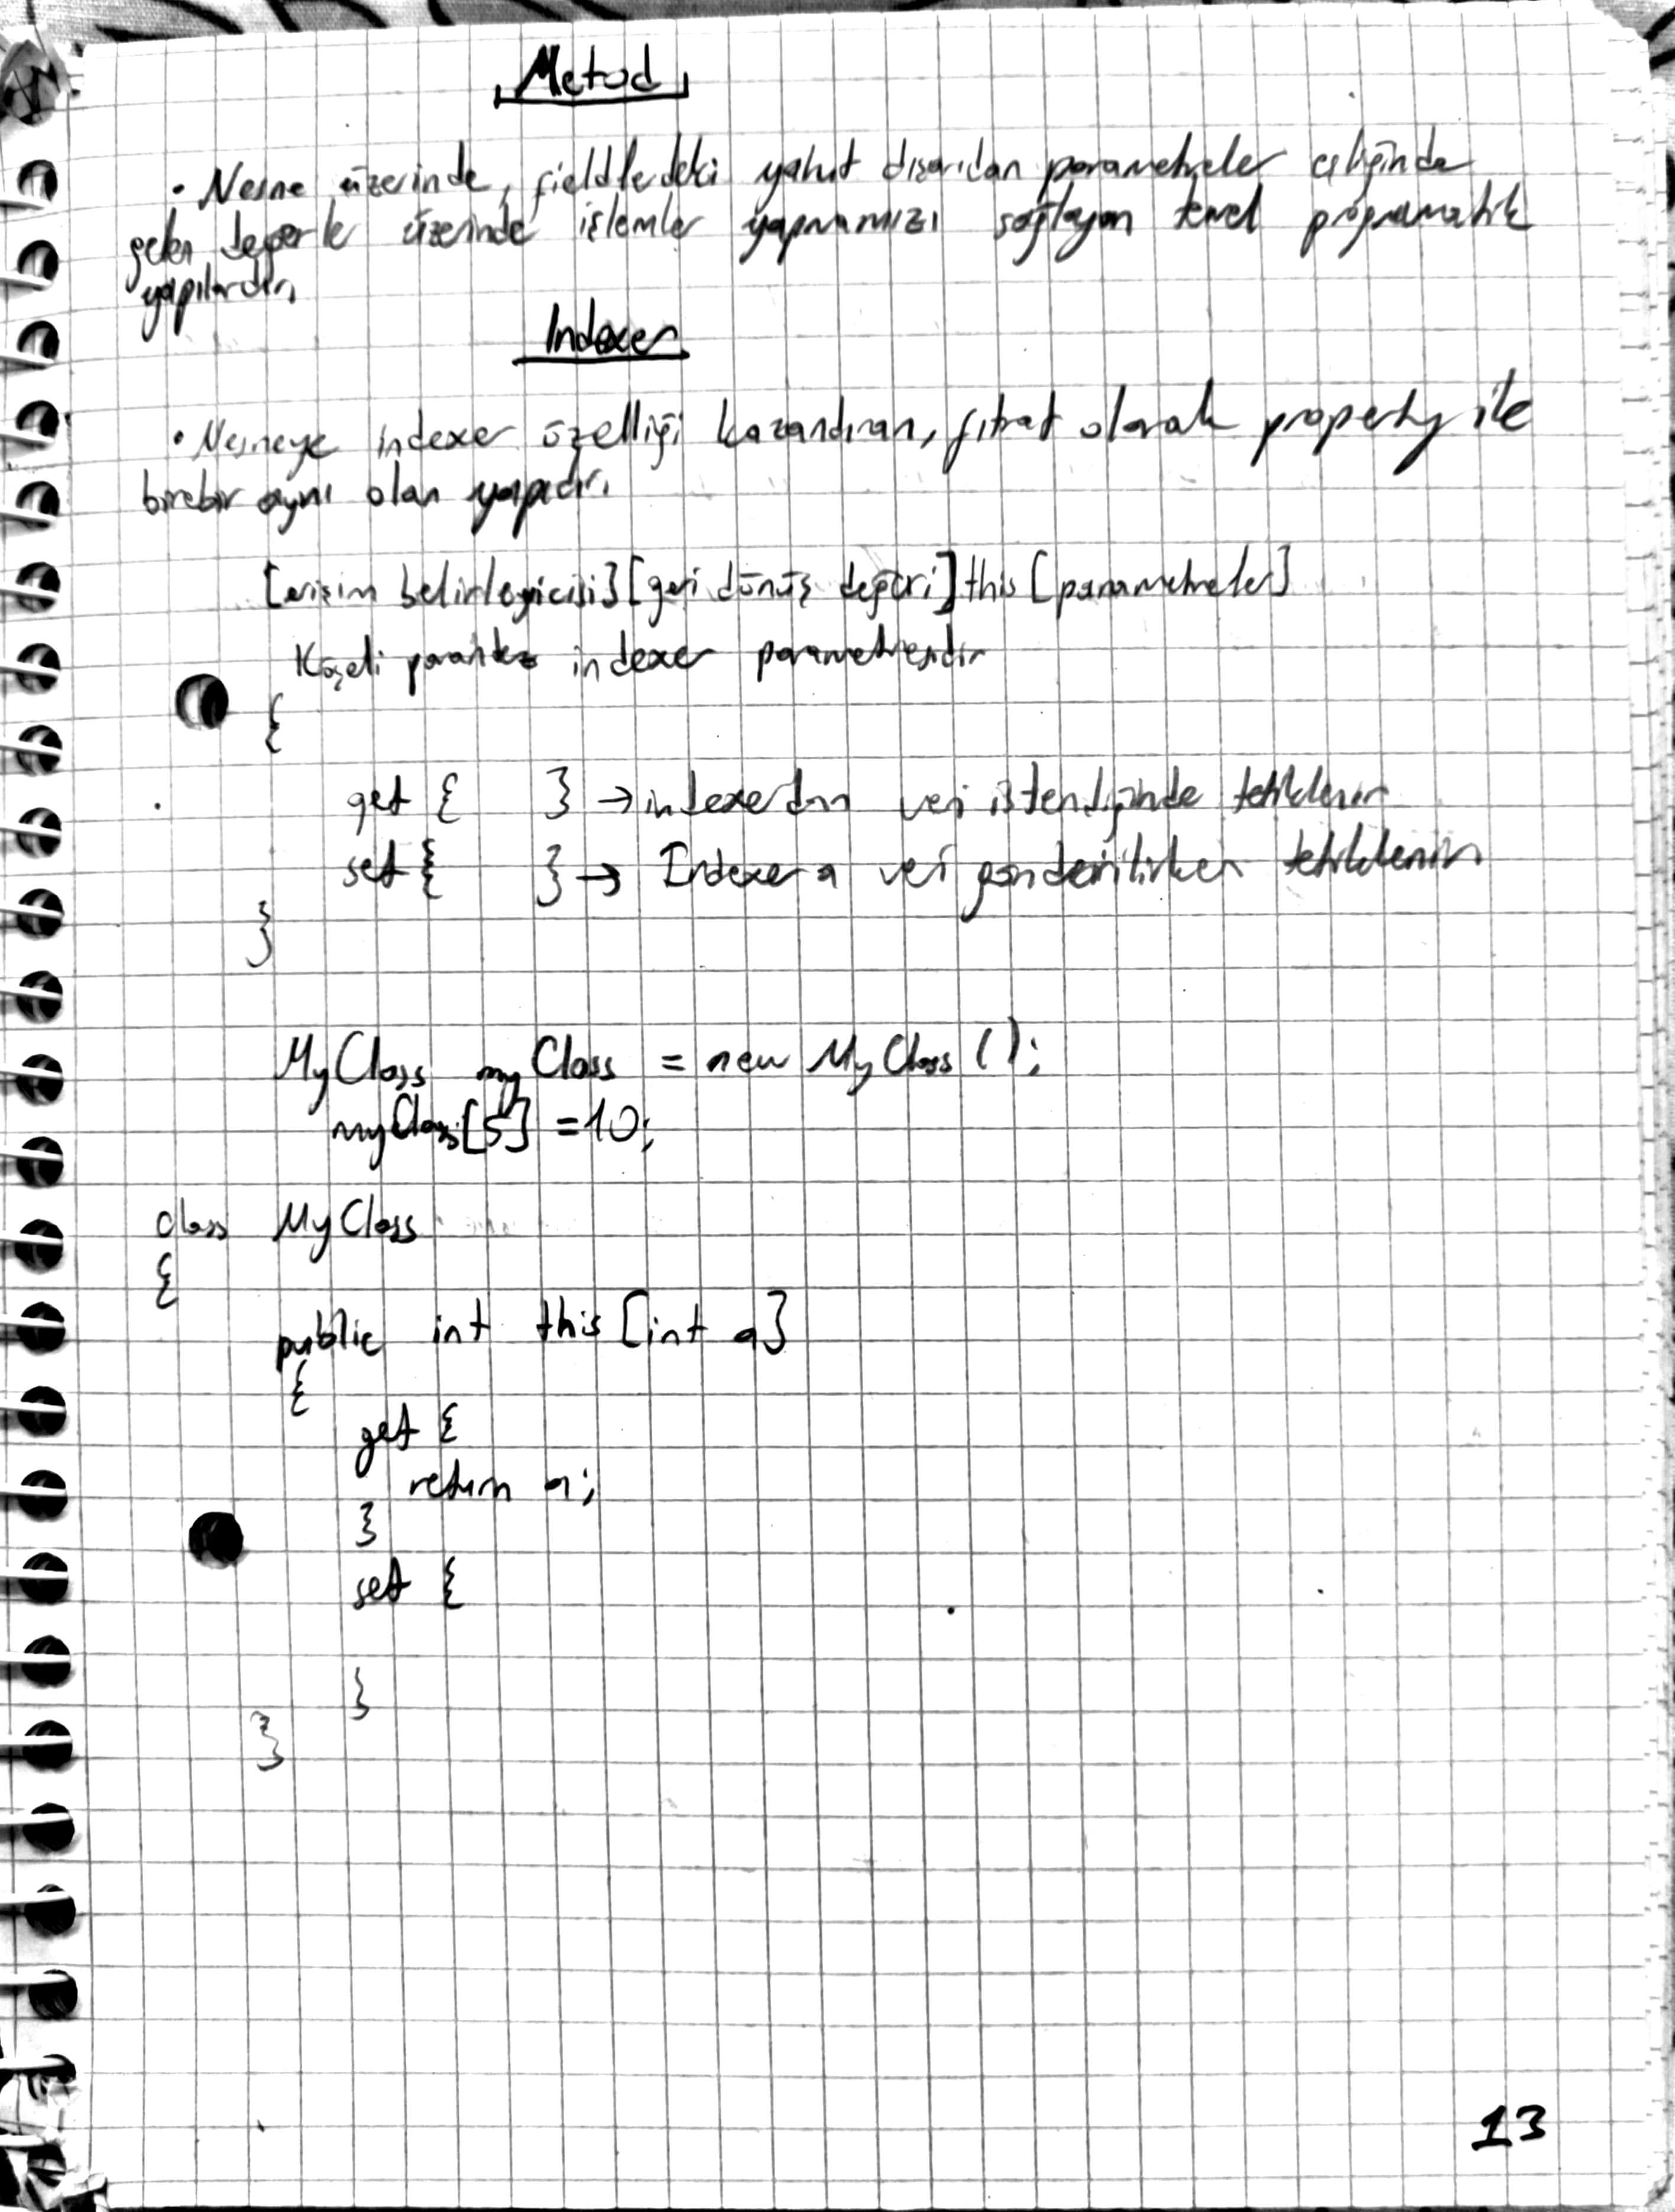 Metod
• Nesne üzerinde, fieldlerdeki yahut dışarıdan parametreler eşliğinde
gelen değerler üzerinde işlemler yapmamızı sağlayan temel programatik
yapılardır.
Indexer
• Nesneye indexer özelliği kazandıran, fıtrat olarak property ile
birebir aynı olan yapıdır.
[erişim belirleyicisi][geri dönüş değeri]this[parametreler]
Köşeli parantez indexer parametresidir
{
get { } → indexerdan veri istendiğinde tetiklenir
set { } → Indexer a veri gönderilirken tetiklenir
}
MyClass myClass = new MyClass();
myClass[5] = 10;
class MyClass
{
public int this [int a]
{
get {
return a;
}
set {
}
}
13